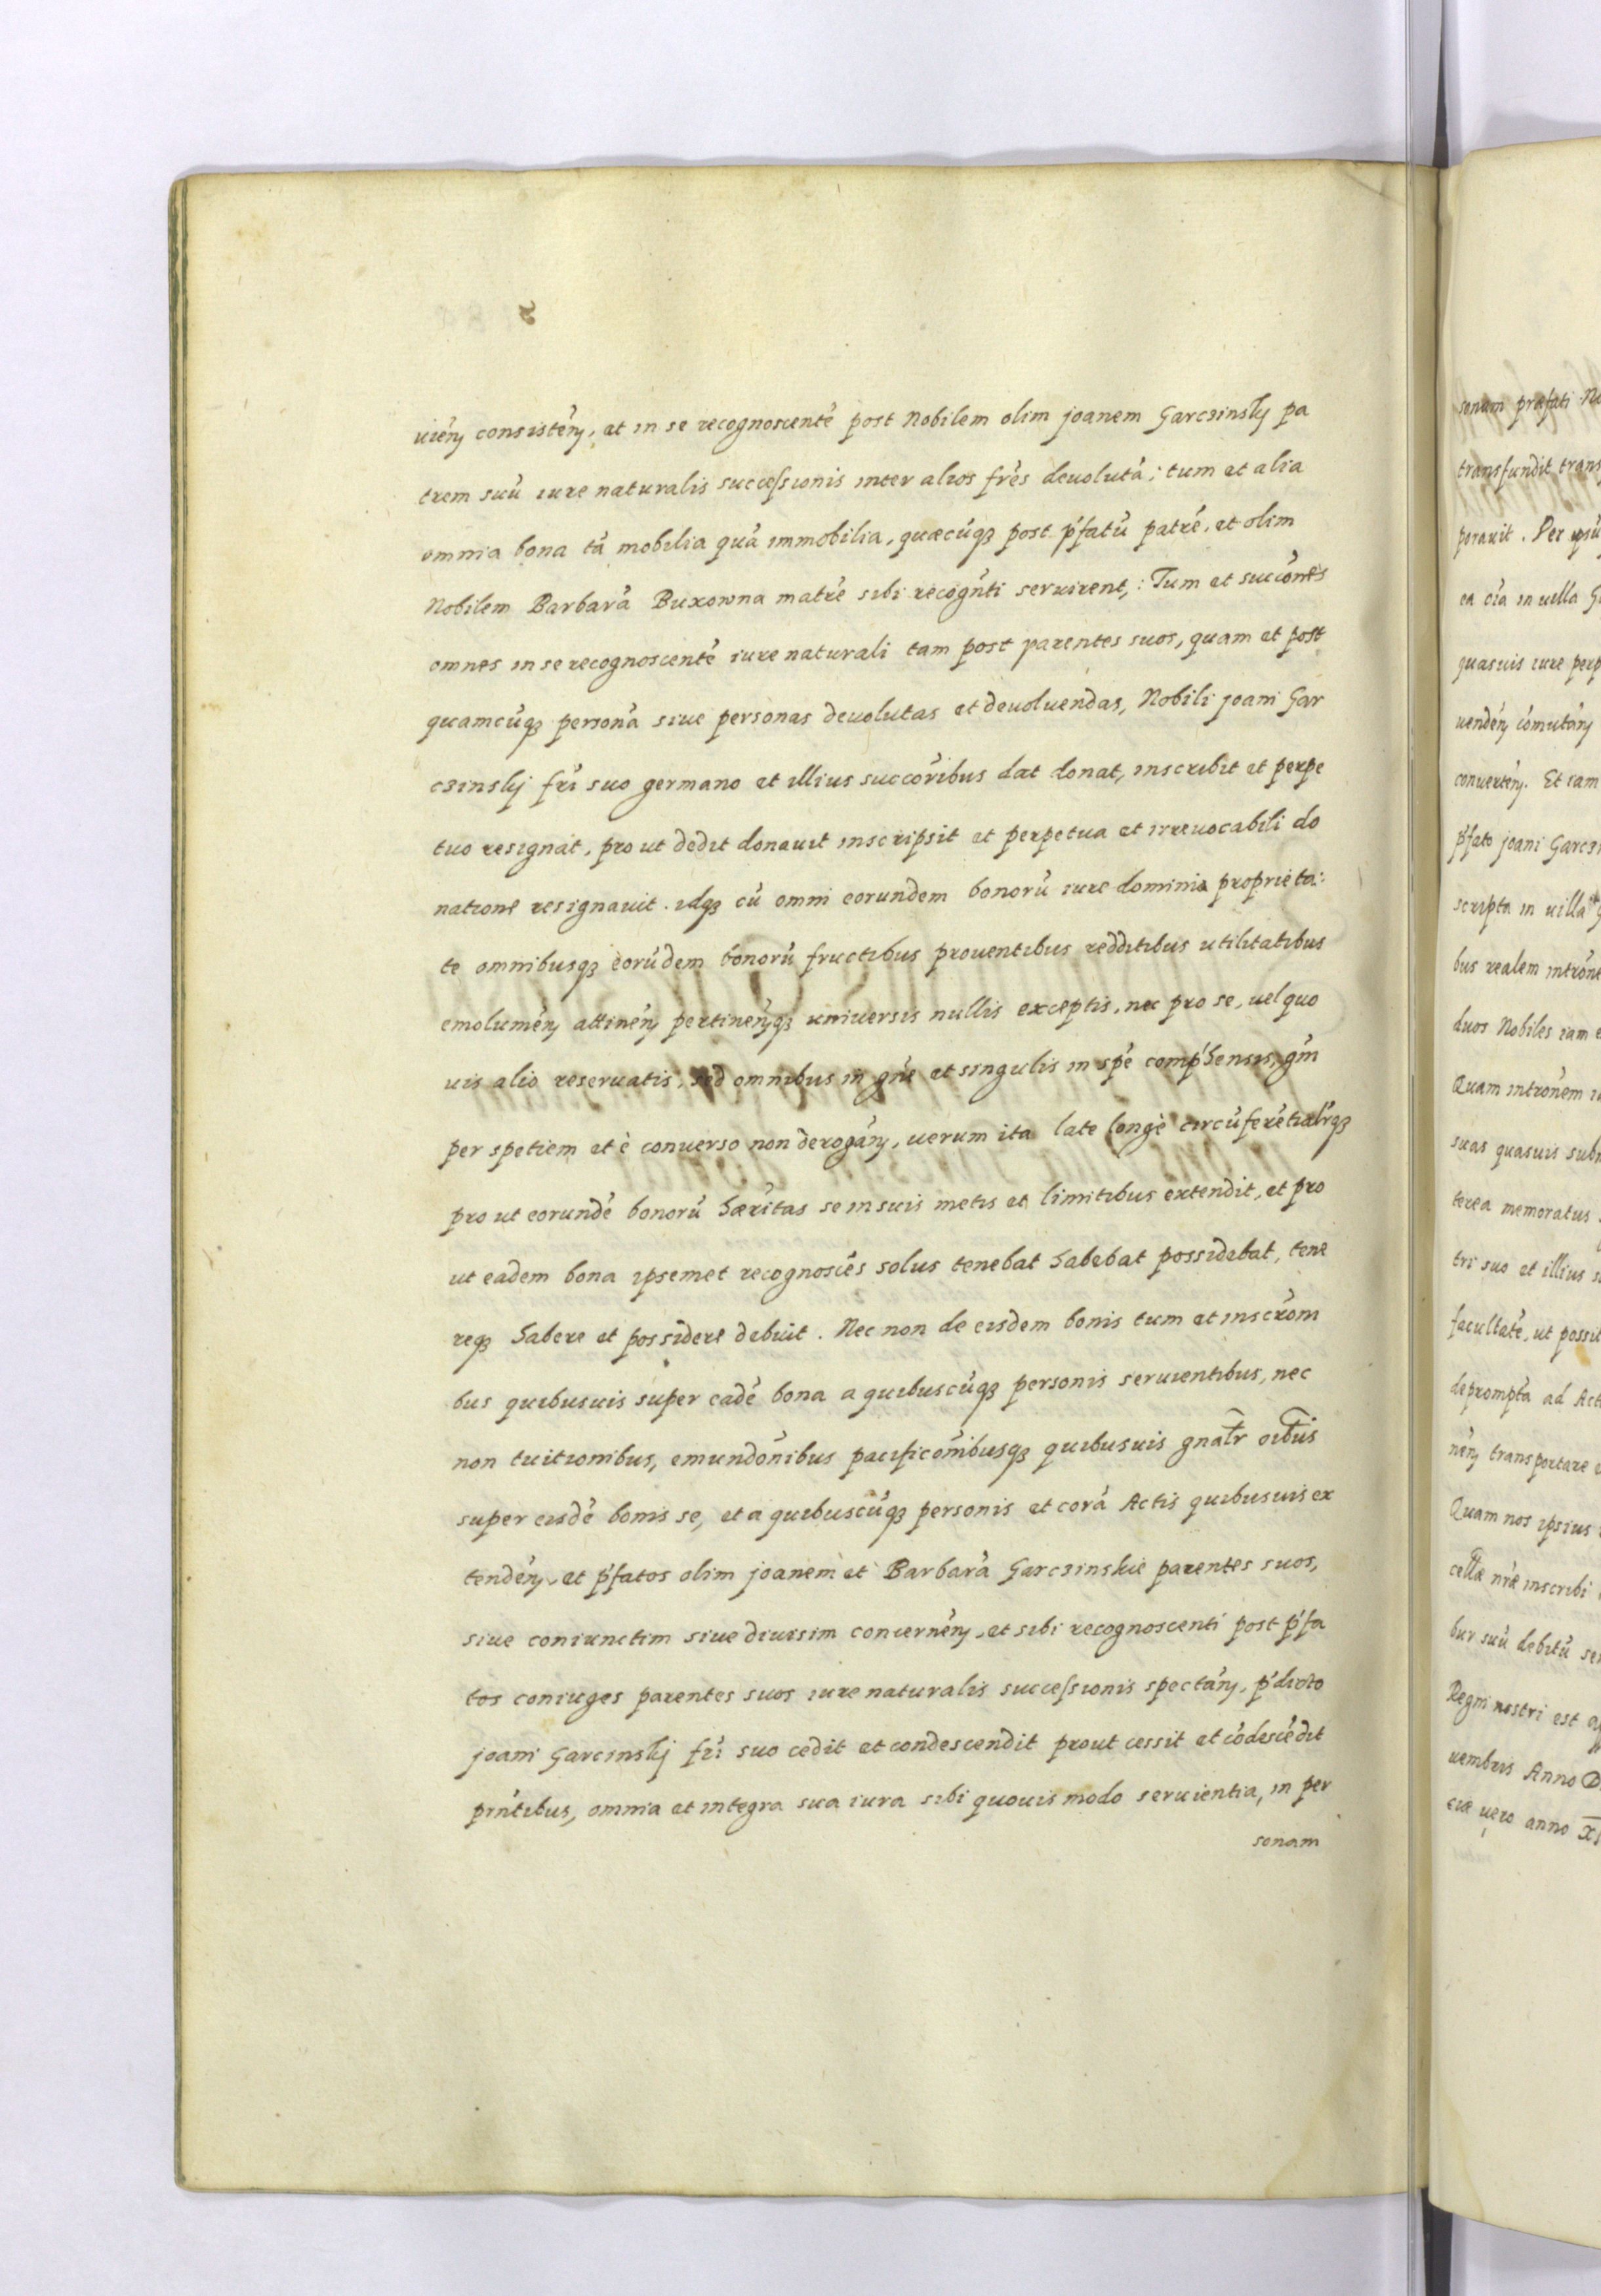 uień consisteń, et in se recognoscentē post Nobilem olim joanem Garczinskÿ pa
trem suū iure naturalis successionis inter alios frēs deuolutā; tum et alia
omnia bona tā mobilia quā immobilia, quaecūqȝ post p̄fatū patrē, et olim
Nobilem Barbarā Buxowna matrē sibi recogn̄ti seruirent,: Tum et succōnes
omnes in se recognoscentē iure naturali tam post parentes suos, quam et post
quamcūqȝ personā siue personas deuolutas et deuoluendas, Nobili joani Gar
czinskj frī suo germano et illius succōribus dat donat, inscribit et perpe
tuo resignat, pro ut dedit donauit inscripsit et perpetua et irreuocabili do
natione resignauit. idqȝ cū omni eorundem bonorū iure dominio proprieta:
te omnibusqȝ eorūdem bonorū fructibus prouentibus redditibus utilitatibus
emolumeń attineń pertineńqȝ uniuersis nullis exceptis, nec pro se, uel quo
uis alio reseruatis, sed omnibus in gn̄e et singulis in spē comp̄hensis, gn̄i
per spetiem et è conuerso non derogań, uerum ita late longè circūferētialrqȝ
pro ut eorundē bonorū haerītas se in suis metis et limitibus extendit, et pro
ut eadem bona ipsemet recognoscēs solus tenebat habebat possidebat, tene
reqȝ habere et possidere debuit. Nec non de eisdem bonis tum et inscrōni
bus quibusuis super eadē bona a quibuscūqȝ personis seruientibus, nec
non tuitionibus, emundōnibus pacificōnibusqȝ quibusuis gnalr̄ oibus
super eisdē bonis se, et a quibuscūqȝ personis et corā Actis quibusuis ex
tendeń, et p̄fatos olim joanem et Barbarā Garczinskie parentes suos,
siue coniunctim siue diuisim concerneń, et sibi recognoscenti post p̄fa
tos coniuges parentes suos iure naturalis successionis spectań, p̄dicto
joani Garcinskj frī suo cedit et condescendit prout cessit et cōdescēdit
prn̄tibus, omnia et integra sua iura sibi quouis modo seruientia, in per
sonam
sonam præfati
transfundit
porauit. Per ipsū
ea oīa in uilla
quasuis iure
uendeń cōmutań
conuerteń. Et iam
p̄fato joani
scripta in uilla
bus realem
duos Nobiles iam
Quam intrōnem
suas quasuis
terea memoratus
tri suo et illius
facultatē, ut
deprompta ad
neń transportare
Quam nos ipsius
cellæ nr̄æ inscribi
bur suū debitū
Regni nostri est
uembris Anno
ciæ uero anno